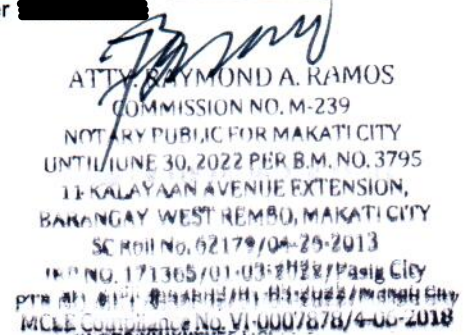 ATTY. RAYMOND A. RAMOS
COMMISSION NO. M-239
NOTARY PUBLIC FOR MAKATI CITY
UNTIL JUNE 30, 2022 PER B.M. NO. 3795
11 KALAYAAN AVENUE EXTENSION,
BARANGAY WEST REMBO, MAKATI CITY
SC Roll No. 62179/04-26-2013
NO. 171365/01-03-2022/Pasig City
MCLE Compliance No. VI-0007878/4-06-2018